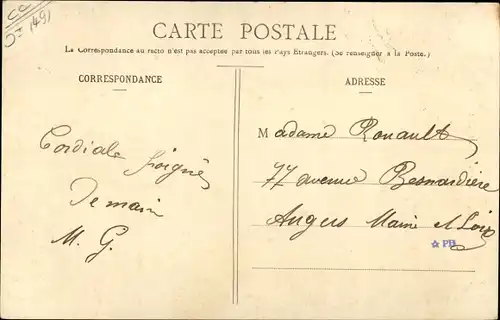 CARTE POSTALE
La Correspondance au recto n'est pas acceptée par tous les Pays Etrangers. (Se renseigner à la Poste.)
CORRESPONDANCE
ADRESSE
Cordiale poignée
De main
M. G.
Madame Rouault
77 avenue Besnardière
Angers Maine et Loire
☆ PH